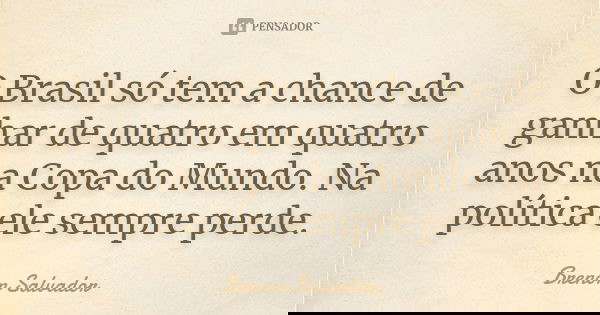 PENSADOR
O Brasil só tem a chance de
ganhar de quatro em quatro
anos na Copa do Mundo. Na
política ele sempre perde.
Salvador